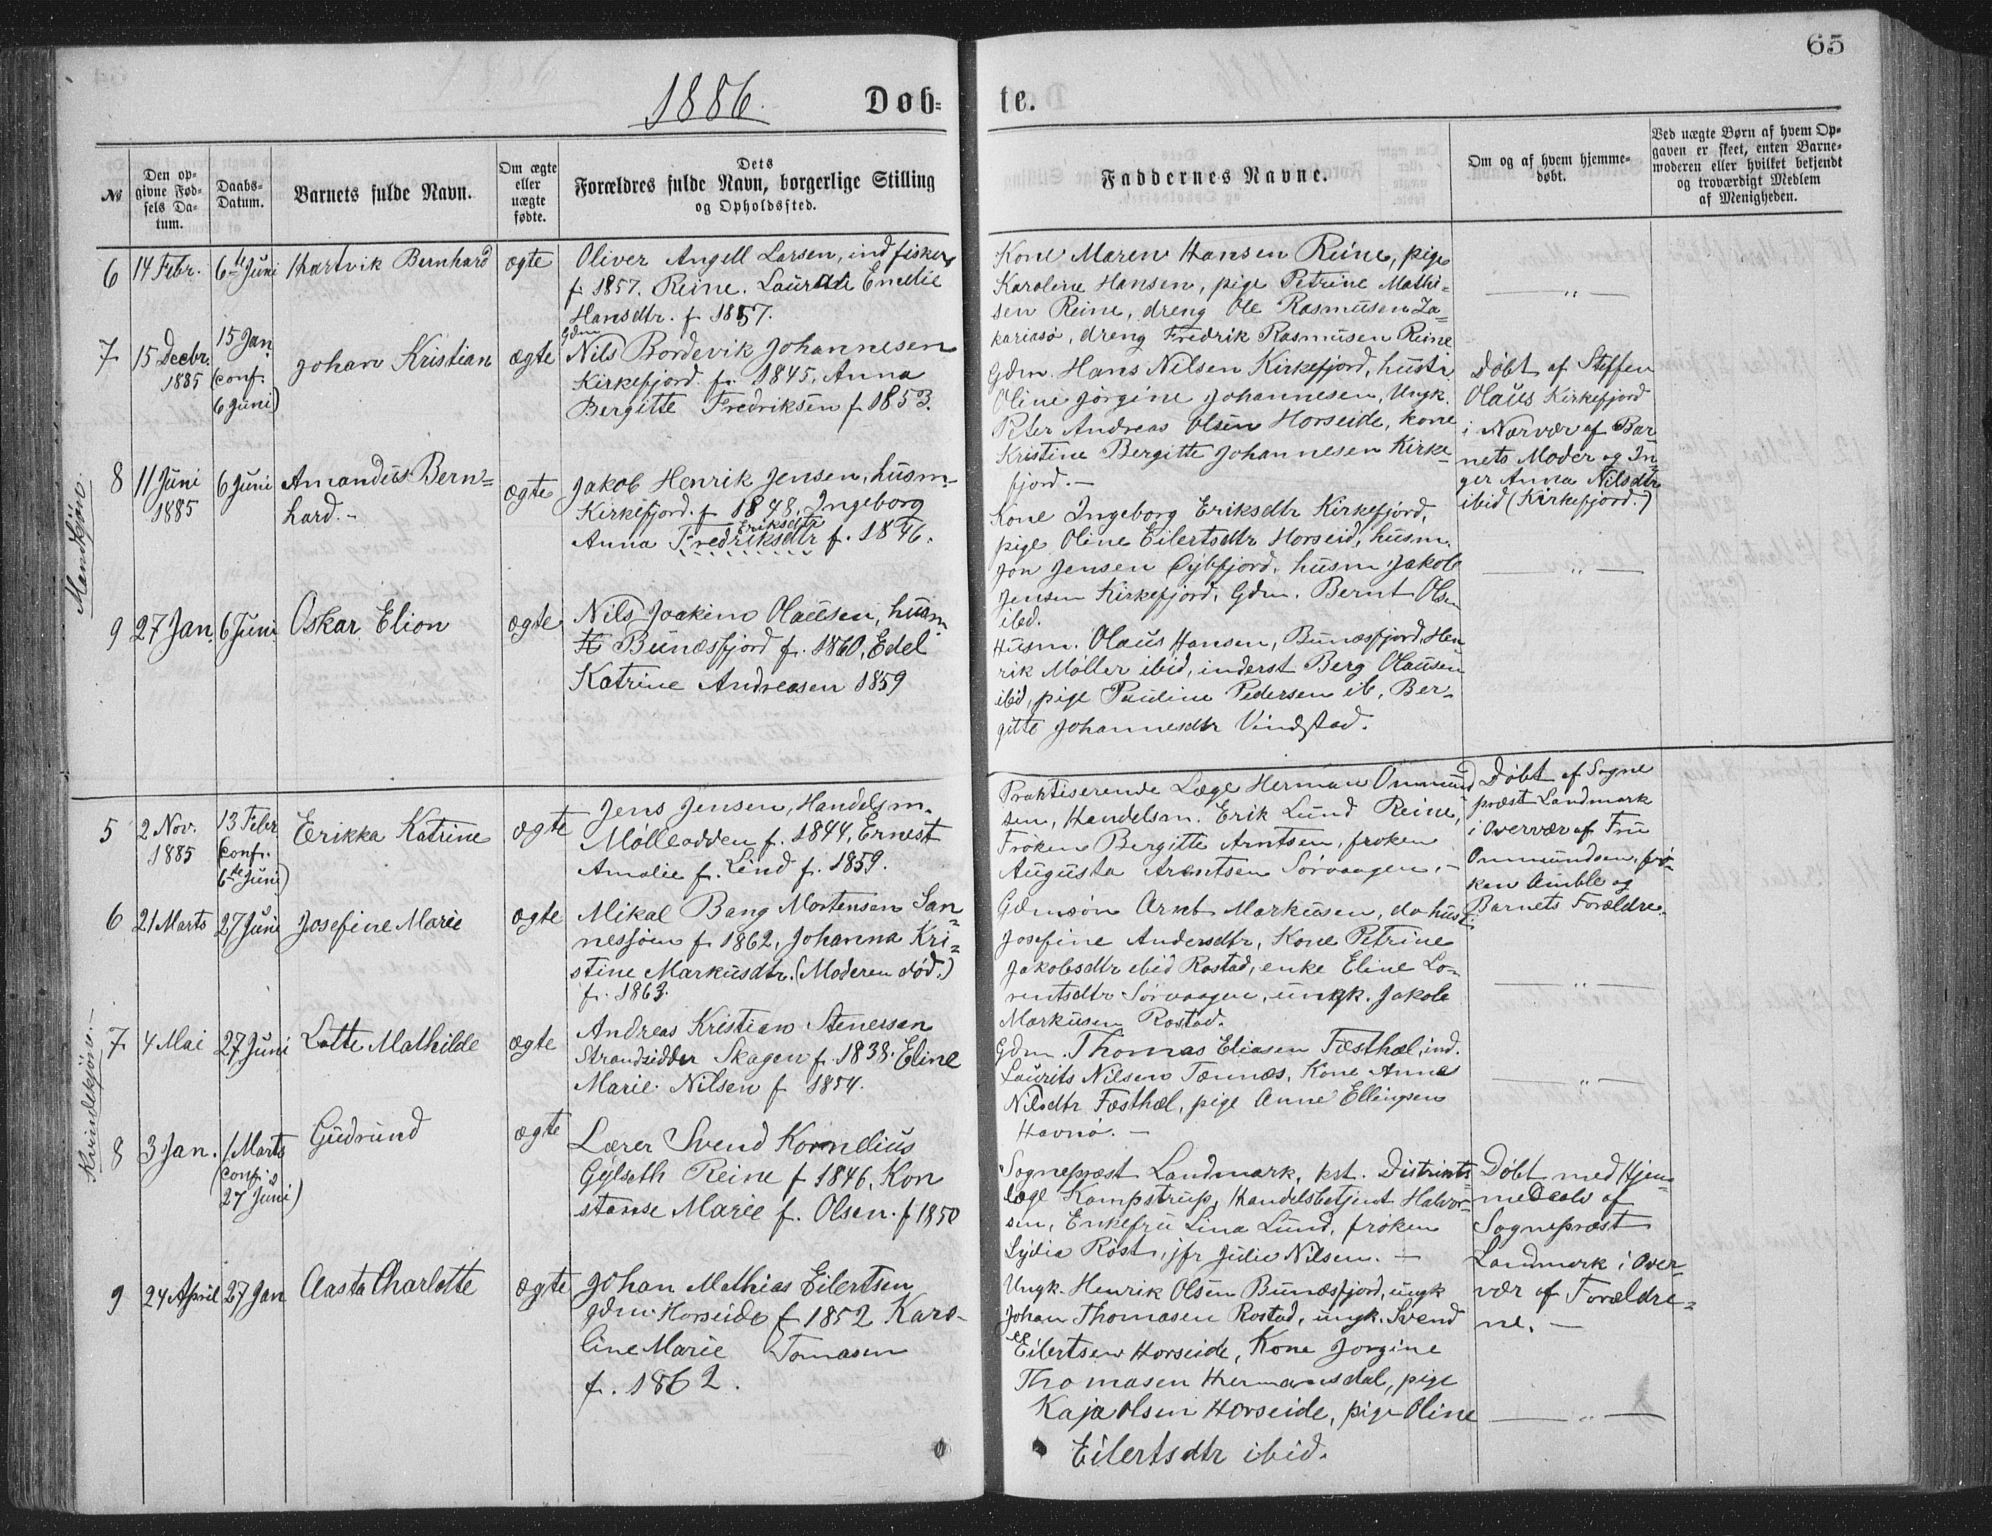 65
1886. Døb-
te.
№
Den op-
givne Fød-
sels Da-
tum.
Daabs-
Datum.
Barnets fulde Navn.
Om ægte
eller
uægte
fødte.
Dets
Forældres fulde Navn, borgerlige Stilling
og Opholdssted.
Faddernes Navne.
Om og af hvem hjemme-
døbt.
Ved uægte Børn af hvem Op-
gaven er skeet, enten Barne-
moderen eller hvilket bekjendt
og troværdigt Medlem
af Menigheden.
Mandkjøn.
6 14 Febr. 6te Juni Hartvik Bernhard ægte
Oliver Angell Larsen, ind fisker
f 1857. Reine. Emelie
Hansdtr. f 1857.
Kone Maren Hansen Reine, pige
Karoline Hansen, pige Petrine Mathi-
sen Reine, dreng Ole Rasmusen Za-
kariasø, dreng Fredrik Rasmusen Reine
— „ —
7 15 Decbr.
1885
15 Jan.
(conf.
6 Juni)
Johan Kristian ægte
Gdm
Nils Bordevik Johannesen
Kirkefjord. f. 1845, Anna
Bergitte Fredriksen f 1853.
Gdm. Hans Nilsen Kirkefjord, hustr.
Oline Jørgine Johannesen, Ungk.
Peter Andreas Olsen Horseide, kone
Kristine Bergitte Johannesen Kirke-
fjord. —
Døbt af Steffen
Olaus Kirkefjord
i Nærvær af Bar
nets Moder og In-
ger Anna Nilsdtr
ibid (Kirkefjord.)
8 11 Juni
1885
6 Juni Amandus Bern=
hard. - ægte
Jakob Henrik Jensen, husm-
Kirkefjord. f 1848, Ingeborg
Eriksdtr
Anna Fredriksdtr f. 1846.
Kone Ingeborg Eriksdtr Kirkefjord,
pige Oline Eilertsdtr Horseid, husm.
Jon Jensen fjord, husm Jakob
Jensen Kirkefjord, Gdm. Bernt Olsen
ibid.
— „ —
9 27 Jan. 6 Juni Oskar Elion ægte
Nils Joakim Olausen, husm
Bunæsfjord f. 1860, Edel
Katrine Andreasen 1859
Husm. Olaus Hansen, Bunæsfjord, Hen
rik Møller ibid, inderst Berg Olausen
ibid, pige Pauline Pedersen ib, Ber-
gitte Johannesdtr Vindstad.
Kvindekjøn. —
5 2 Nov.
1885
13 Febr
(conf.
6te Juni)
Eerikka Katrine ægte
Jens Jensen, Handelsm.
Mølleodden f. 1844, Ernest
Amalie f. Lund f. 1859.
Praktiserende Læge Herman Ommund
sen, Handelsm. Erik Lund Reine,
Frøken Bergitte Arntsen, frøken
Augusta Arentsen Sørvaagen, -
Døbt af Sogne
præst Landmark
i Overvær af Fru
Ommundsen, frø-
ken Amble og
Barnets Forældre.
6 21 Marts 27 Juni Josefine Marie ægte
Mikal Bang Mortensen San-
nessjøen f 1862, Johanna Kri-
stine Markusdtr. (Moderen død.)
f. 1863.
Gdmsøn Arnt Markusen, do hustr
Josefine Andersdtr, Kone Petrine
Jakobsdtr ibid Rostad, enke Eline Lo-
rentsdtr Sørvaagen, ungk. Jakob
Markusen Rostad.
— „ —
7 4 Mai 27 Juni Lotte Mathilde ægte
Andreas Kristian Stenersen
Strandsidder Skagen f. 1838. Eline
Marie Nilsen f 1854.
Gdm. Thomas Eliasen Fæsthæl, ind.
Laurits Nilsen Tennes, Kone Anna
Nilsdtr Fæsthæl, pige Anne Ellingsen
Havnø. —
— „ —
8 3 Jan. 1 Marts
(conf. d
27 Juni)
Gudrund ægte
Lærer Svend Kornelius
Gylseth Reine f 1846, Kon
stanse Marie f. Olsen. f 1850
Sognepræst Landmark, kst. Distrikts
læge Kampstrup, Handelsbetjent Halvor-
sen, Enkefru Lina Lund, frøken
Lydia Røst, jfr Julie Nilsen. —
Døbt med Hjem
medaab af
Sognepræst
Landmark i Over-
vær af Forældre-
ne. —
9 24 April 27 Jan Aasta Charlotte ægte
Johan Mathias Eilertsen
gdm. Horseide f 1852 Karo-
line Marie Tomasen
f. 1862.
Ungk. Henrik Olsen Bunæsfjord, ungk
Johan Thomasen Rostad, ungk. Svend
Eilertsen Horseide, Kone Jorgine
Thomasen Hermansdal, pige
Kaja Olsen Horseide, pige Oline
Eilertsdtr ibid.
— „ —